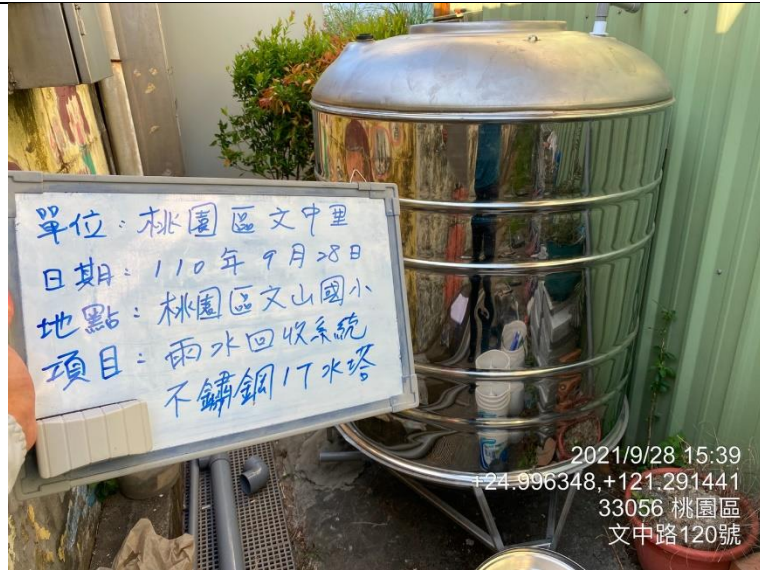 單位：桃園區文中里
日期：110年9月28日
地點：桃園區文山國小
項目：雨水回收系統
不鏽鋼1T水塔
2021/9/28 15:39
+24.996348,+121.291441
33056 桃園區
文中路120號